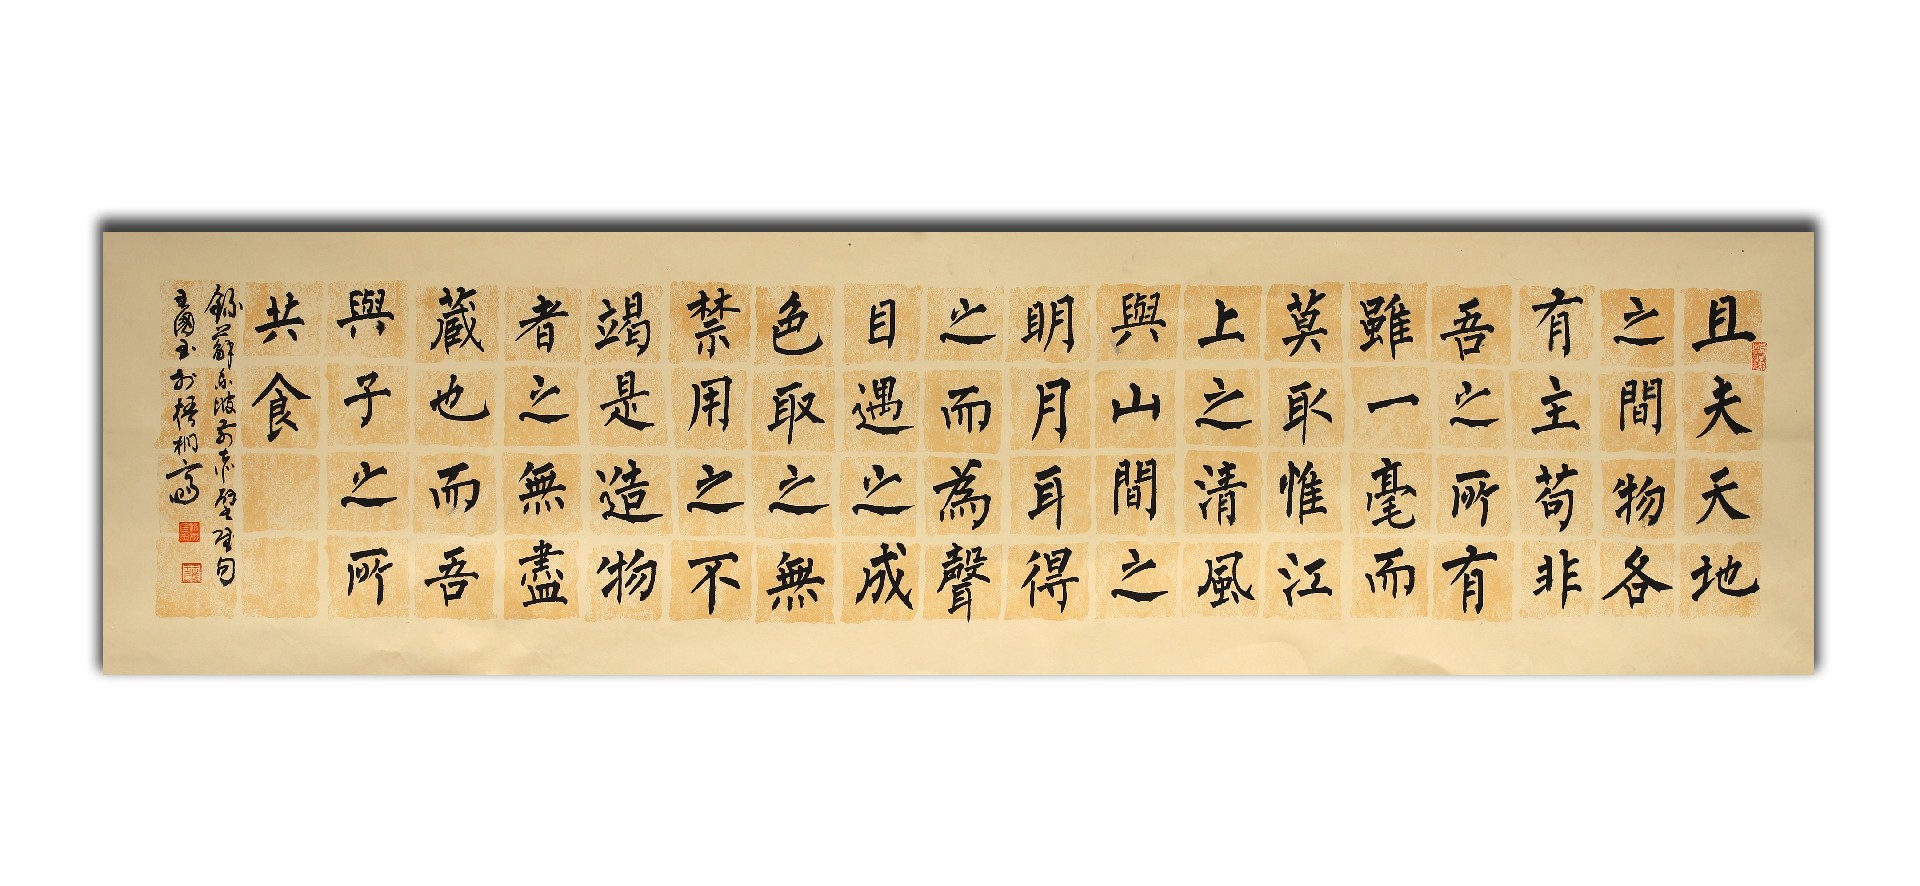 且夫天地
之間物各
有主苟非
吾之所有
雖一毫而
莫取惟江
上之清風
與山間之
明月耳得
之而為聲
目遇之成
色取之無
禁用之不
竭是造物
者之無盡
蔵也而吾
與子之所
共食
錄蘇東坡前赤壁賦句
王國玉於梧桐